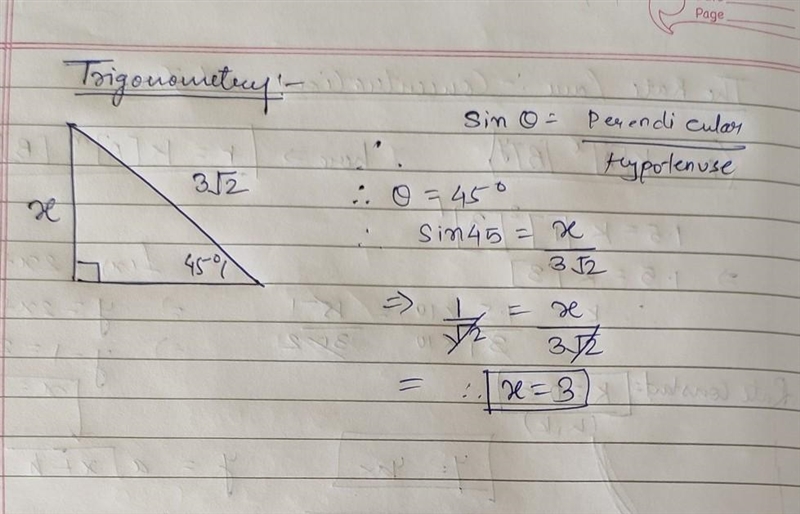 Page
Trigonometry:-
Sin θ = Perendicular / Hypotenuse
x
3√2
45°
∴ θ = 45°
∴ Sin45 = x / 3√2
⇒ 1/√2 = x / 3√2
= ∴ x = 3